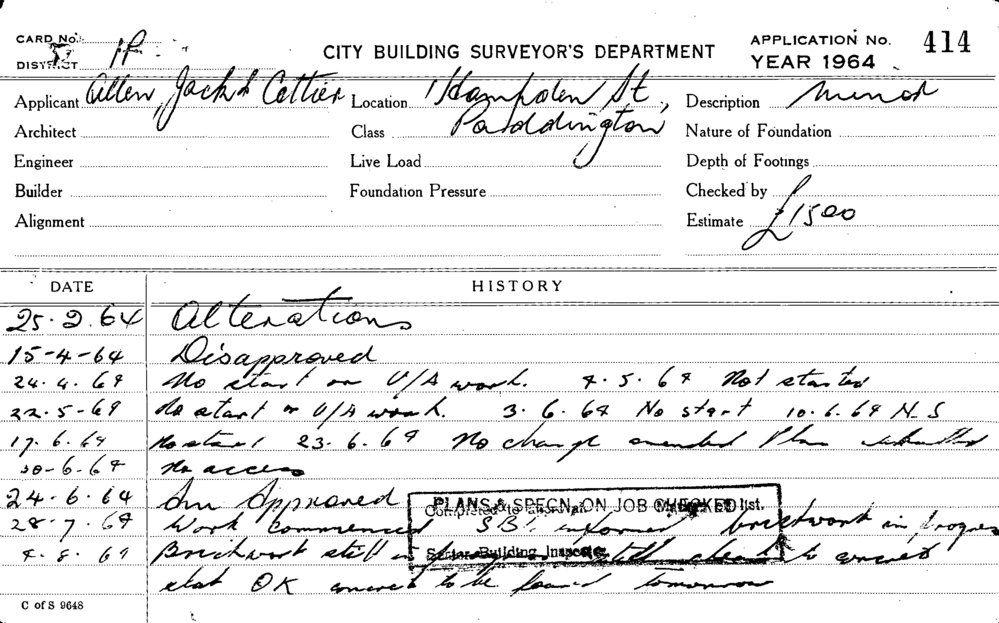 CARD No.
DISTRICT
CITY BUILDING SURVEYOR'S DEPARTMENT
APPLICATION No. 414
YEAR 1964
Applicant Allen, Jack & Cottier
Location Hampden St.,
Description Minor
Architect
Class Paddington
Nature of Foundation
Engineer
Live Load
Depth of Footings
Builder
Foundation Pressure
Checked by
Alignment
Estimate £1500
DATE HISTORY
25.2.64 Alterations
15-4-64 Disapproved
24.4.64 No start on U/A work. 4.5.64 Not started
22.5-64 No start on U/A work. 3.6.64 No start 10.6.64 N.S
17.6.64 No start 23.6.64 No change amended Plan submitted
6.64 No access
24.6.64 Am Approved
PLANS & SPECN. ON JOB CHECKED list.
28.7.64 Work commenced S.B. informed brickwork in progress
Building Inspector
4.8.64 Brickwork still in
slab OK concrete to be poured tomorrow
C of S 9648